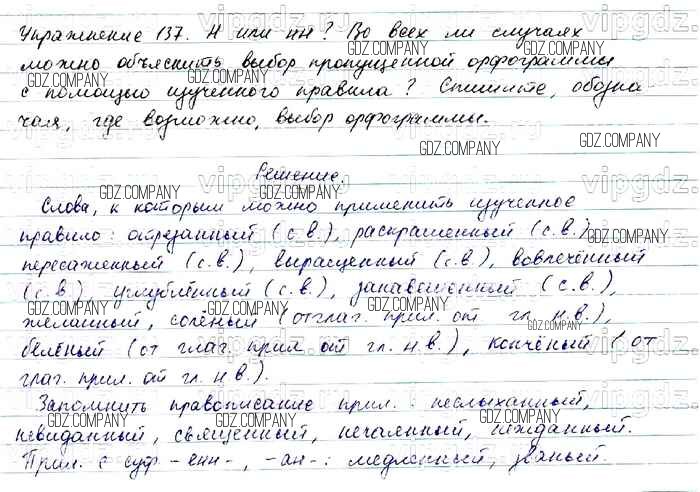 Упражнение 137. Н или нн? Во всех ли случаях
можно объяснить выбор пропущенной орфограммы
с помощью изученного правила? Спишите, обозна
чая, где возможно, выбор орфограммы.
Решение.
Слова, к которым можно применить изученное
правило: отрезанный (с.в.), раскрашенный (с.в.),
пересаженный (с.в.), выращенный (с.в.), вовлечённый
(с.в), углублённый (с.в.), занавешенный (с.в.),
желанный, солёный (от глаг. прил. от гл. н.в.),
белёный (от глаг. прил от гл. н.в.), копчёный (от
глаг. прил. от гл. н.в.).
Запомнить правописание прил.: неслыханный,
невиданный, священный, нечаянный, нежданный.
Прил. с суф -енн-, -ан-: медленный, званый.
GDZ.COMPANY
vipgdz.ru